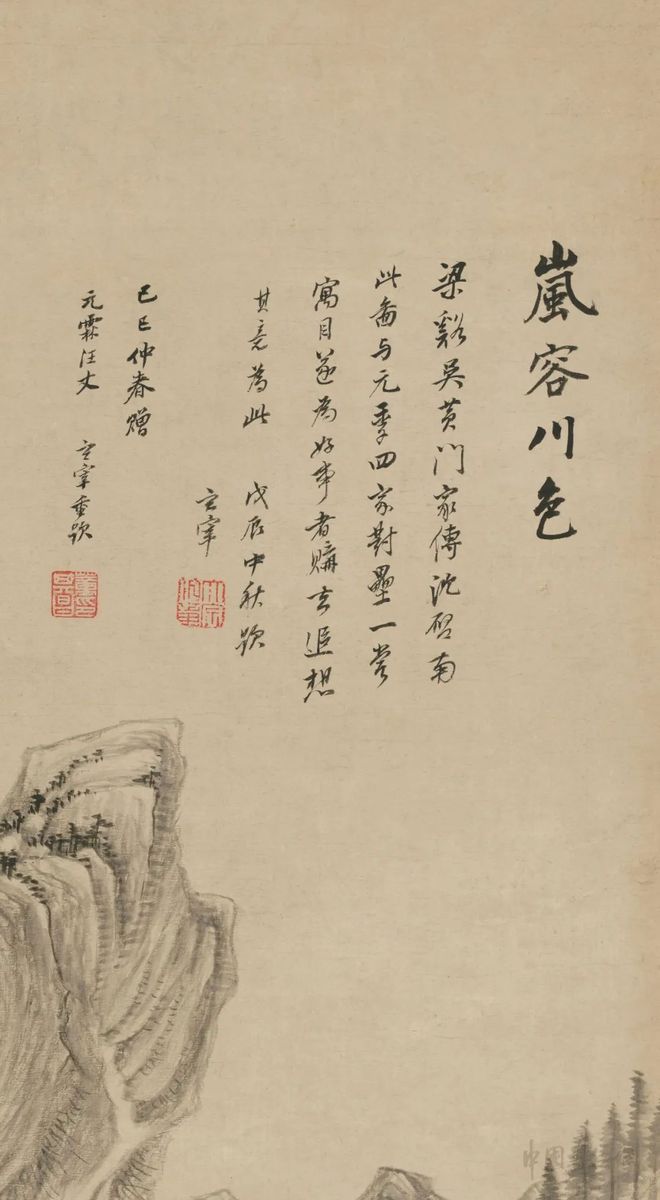 嵐容川色
梁谿吳黃門家傳沈啓南
此啚与元季四家對壘一嘗
寓目遂爲好事者購去追想
其意為此 戊辰中秋題
玄宰
己巳仲春贈
元霖汪丈 玄宰重題